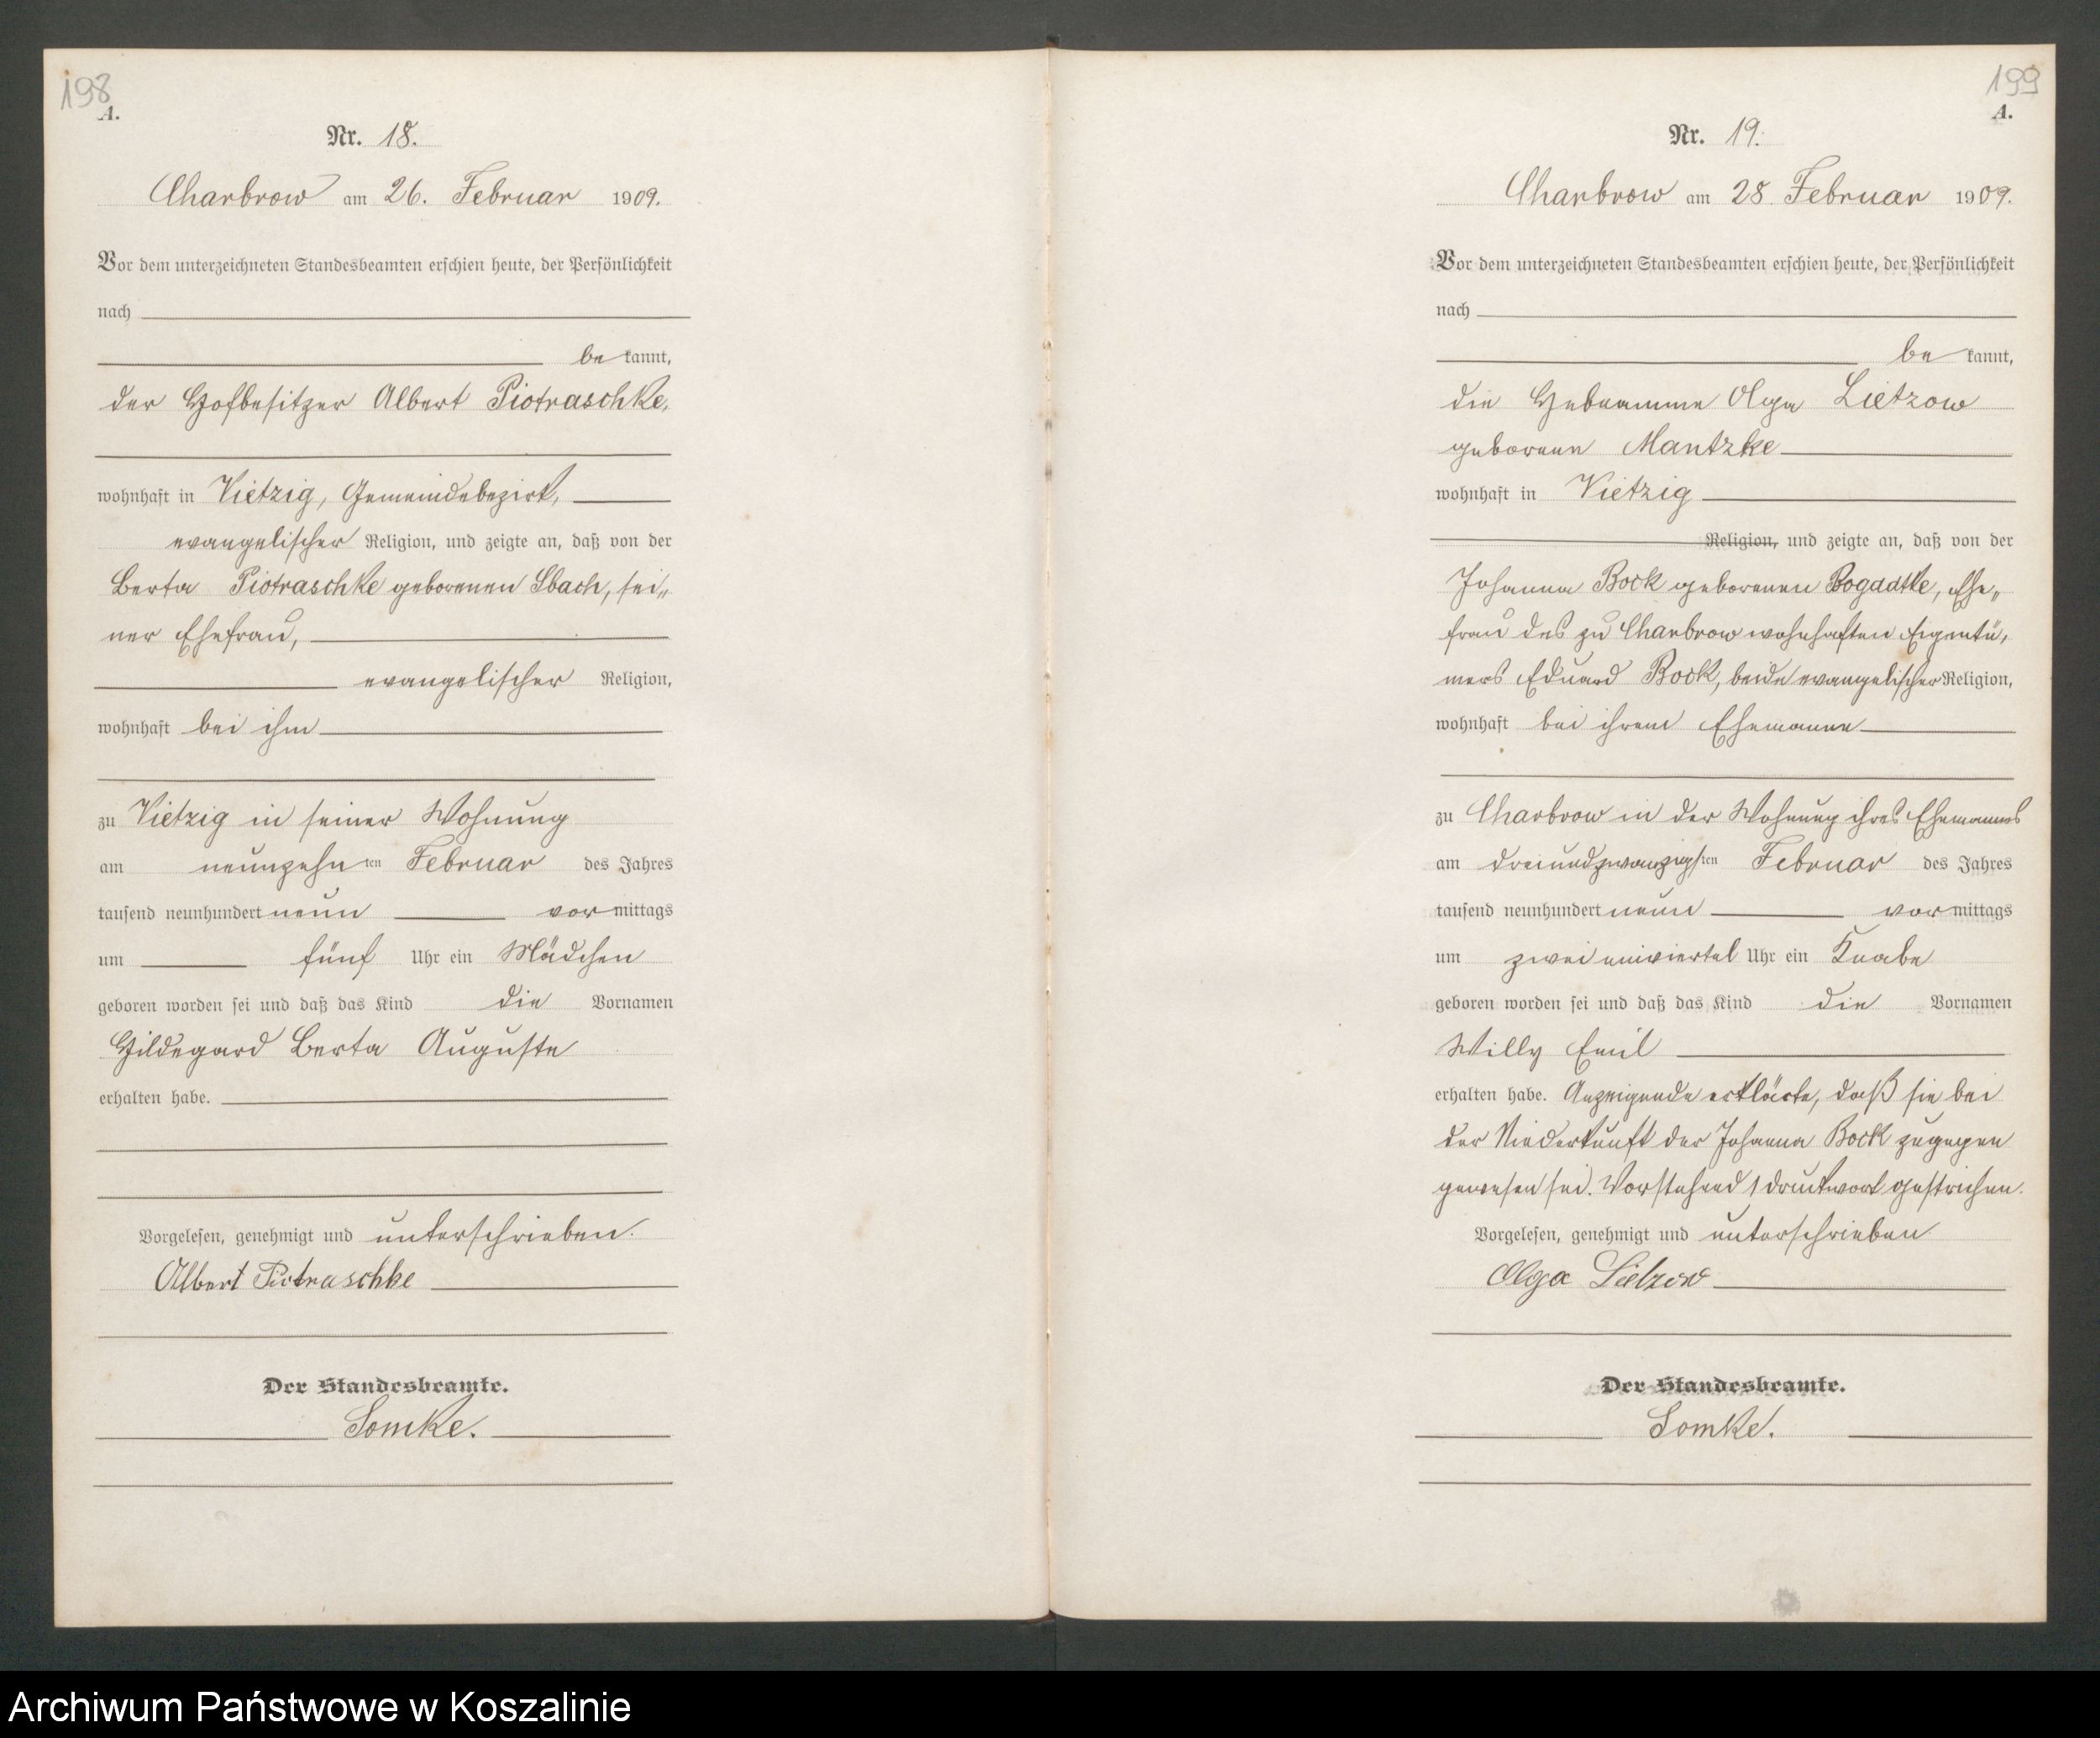 198
A.
Nr. 18.
Charbrow am 26. Februar 1909.
Vor dem unterzeichneten Standesbeamten erschien heute, der Persönlichkeit
nach
be kannt,
der Hofbesitzer Albert Piotraschke,
wohnhaft in Vietzig, Gemeindebezirk,
evangelischer Religion, und zeigte an, daß von der
Berta Piotraschke geborenen Sbach, sei„
ner Ehefrau,
evangelischer Religion,
wohnhaft bei ihm
zu Vietzig in seiner Wohnung
am neunzehn ten Februar des Jahres
tausend neunhundert neun vor mittags
um fünf Uhr ein Mädchen
geboren worden sei und daß das Kind die Vornamen
Hildegard Berta Auguste
erhalten habe.
Vorgelesen, genehmigt und unterschrieben.
Albert Piotraschke
Der Standesbeamte.
Somke.
199
A.
Nr. 19.
Charbrow am 28. Februar 1909.
Vor dem unterzeichneten Standesbeamten erschien heute, der Persönlichkeit
nach
be kannt,
die Hebeamme Olga Lietzow
geborene Mantzke
wohnhaft in Vietzig
Religion, und zeigte an, daß von der
Johanna Bock geborenen Bogadtke, Ehe„
frau des zu Charbrow wohnhaften Eigentü„
mers Eduard Bock, beide evangelischer Religion,
wohnhaft bei ihrem Ehemanne
zu Charbrow in der Wohnung ihres Ehemanns
am dreiundzwanzigsten Februar des Jahres
tausend neunhundert neun vor mittags
um zwei einviertel Uhr ein Knabe
geboren worden sei und daß das Kind die Vornamen
Willy Emil
erhalten habe. Anzeigende erklärte, daß sie bei
der Niederkunft der Johanna Bock zugegen
gewesen sei. Vorstehend 1 Druckwort gestrichen.
Vorgelesen, genehmigt und unterschrieben
Olga Lietzow
Der Standesbeamte.
Somke.
Archiwum Państwowe w Koszalinie